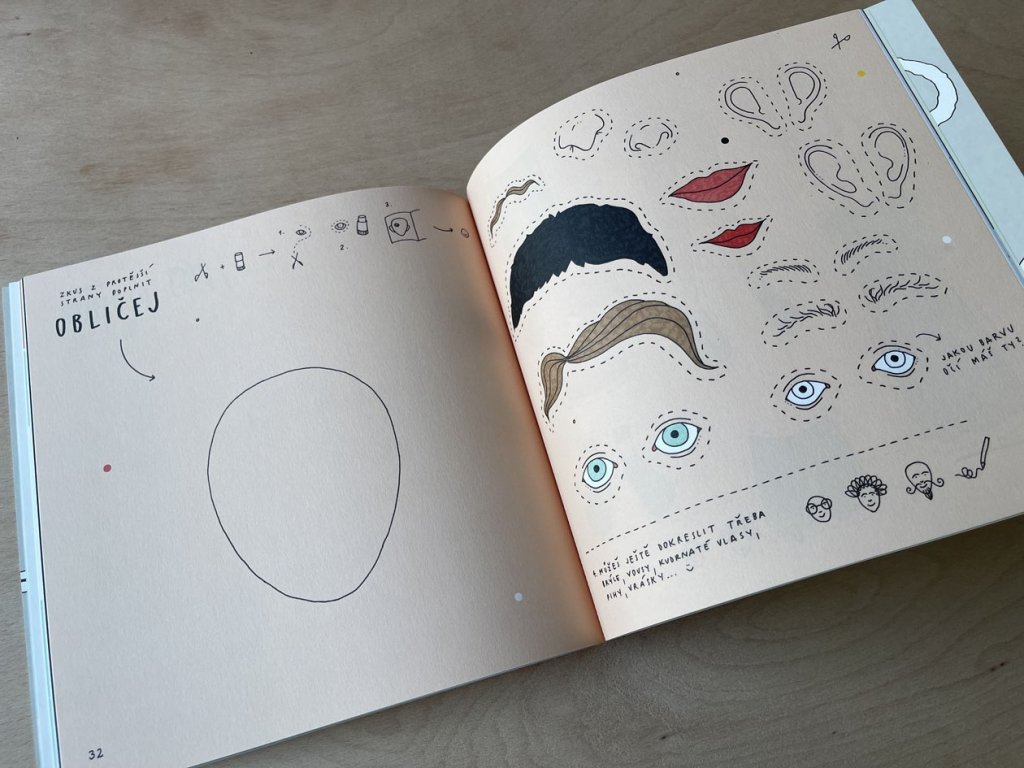 ZKUS Z PROTĚJŠÍ
STRANY DOPLNIT
OBLIČEJ
+
1.
2.
3.
32
JAKOU BARVU
OČÍ MÁŠ TY?
4. MŮŽEŠ JEŠTĚ DOKRESLIT TŘEBA
BRÝLE, VOUSY, KUDRNATÉ VLASY,
PIHY, VRÁSKY... :)